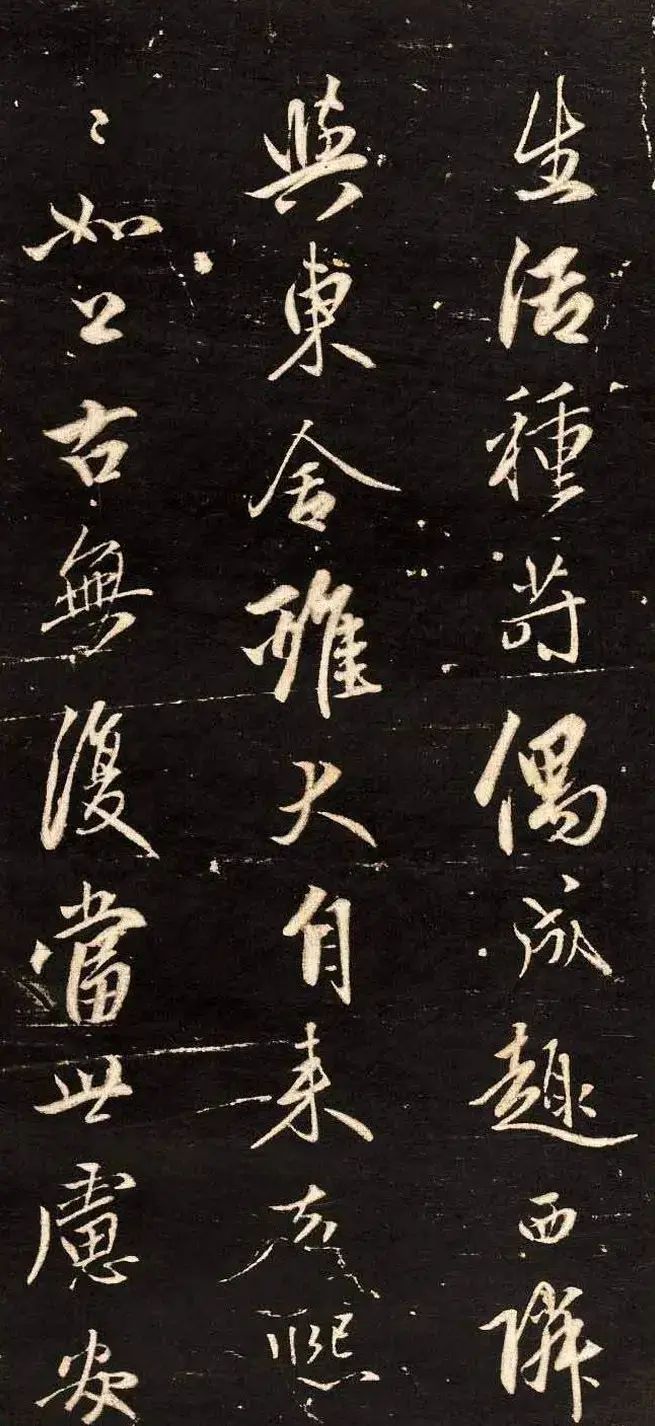 生活種莳偶成趣西隣
與東舍雖犬自来去熙
〻如上古無復當世慮安